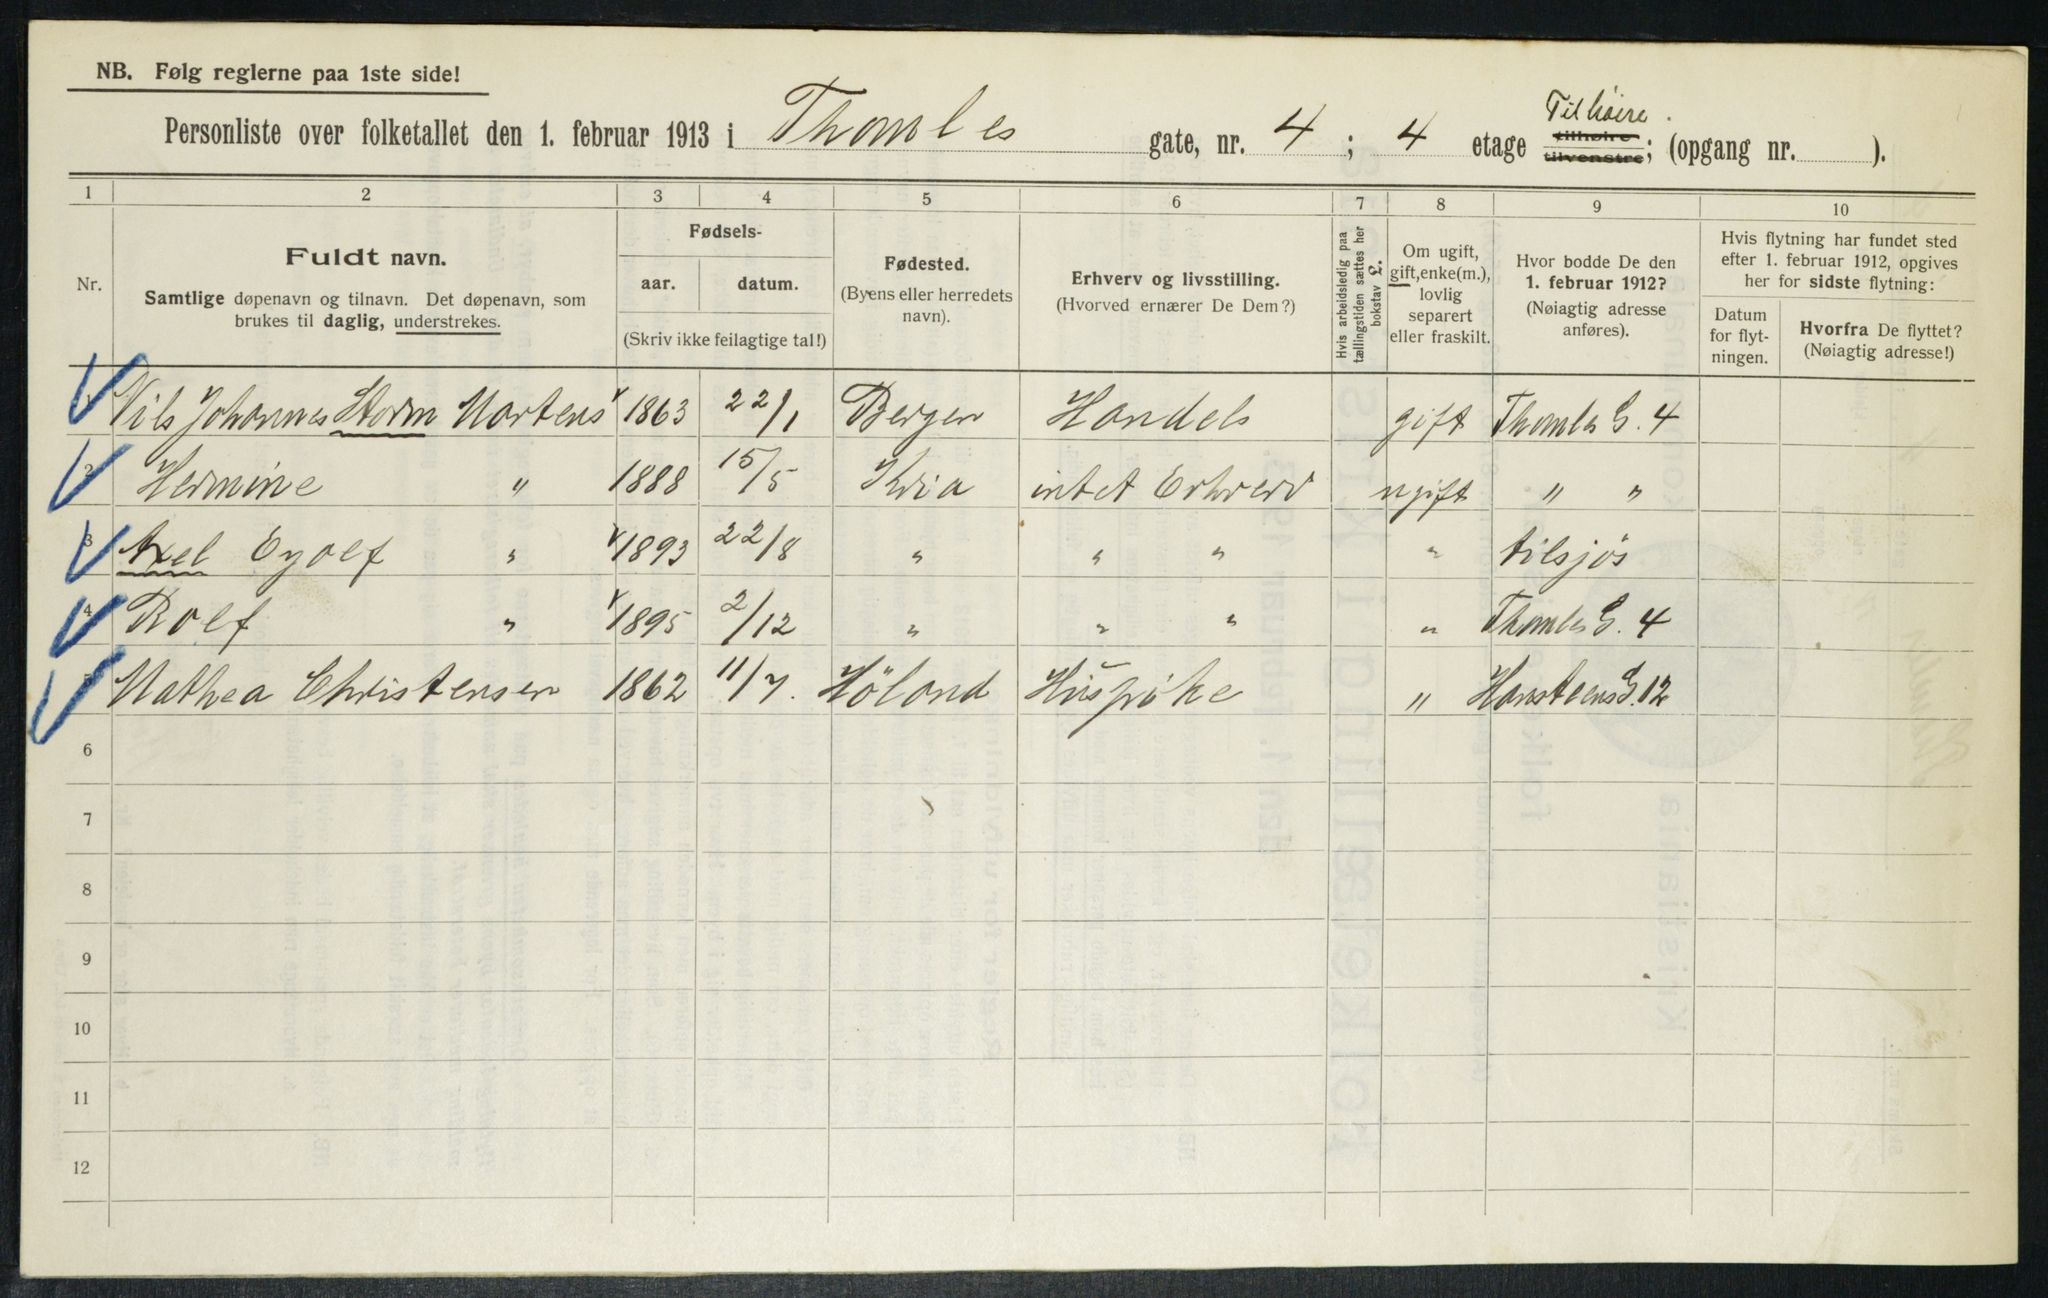 NB. Følg reglerne paa 1ste side!
Tilhøire.
Personliste over folketallet den 1. februar 1913 i Thomles gate, nr. 4; 4 etage tilhøire tilvenstre; (opgang nr. ).
1 2 3 4 5 6 7 8 9 10
Nr.
Fuldt navn.
Samtlige døpenavn og tilnavn. Det døpenavn, som
brukes til daglig, understrekes.
Fødsels-
aar. datum.
(Skriv ikke feilagtige tal!)
Fødested.
(Byens eller herredets
navn).
Erhverv og livsstilling.
(Hvorved ernærer De Dem?)
Hvis arbeidsledig paa
tællingstiden sættes her
bokstav L.
Om ugift,
gift, enke(m.),
lovlig
separert
eller fraskilt.
Hvor bodde De den
1. februar 1912?
(Nøiagtig adresse
anføres).
Hvis flytning har fundet sted
efter 1. februar 1912, opgives
her for sidste flytning:
Datum
for flyt-
ningen.
Hvorfra De flyttet?
(Nøiagtig adresse!)
1 Nils Johannes Storm Mortens 1863 22/1 Bergen Handels gift Thomles G. 4
2 Hermine " 1888 15/5 Kria intet Erhverv ugift " "
3 Axel Eyolf " 1893 22/8 " " " " tilsjøs
4 Rolf " 1895 2/12 " " " " Thomles G. 4
5 Mathea Christensen 1862 11/7. Höland " Hansteens G. 12
6
7
8
9
10
11
12